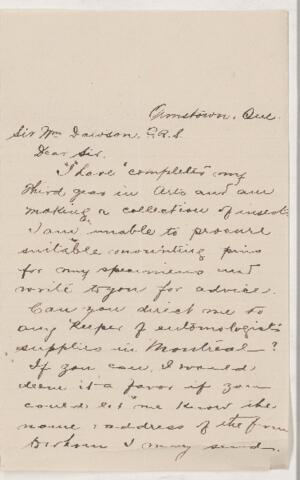 Ormstown, Que.
Sir Wm Dawson, F.R.S.
Dear Sir.
I have completed my
third year in Arts and am
making a collection of insects.
I am unable to procure
suitable mounting pins
for my specimens and
write to you for advice.
Can you direct me to
any keeper of entomologist's
supplies in Montreal?
If you can, I would
deem it a favor if you
could let me know the
name & address of the firm
to whom I may send.